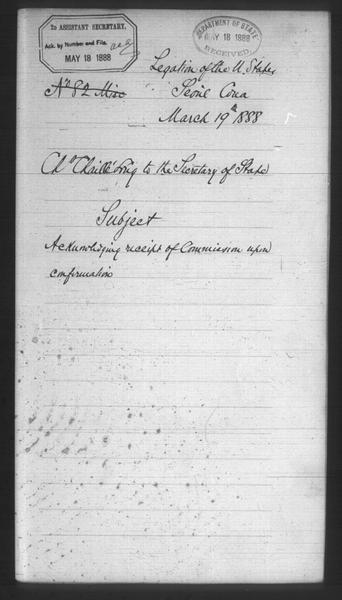 To ASSISTANT SECRETARY,
Ack. by Number and File.
MAY 18 1888
DEPARTMENT OF STATE
MAY 18 1888
RECEIVED
Legation of the U. States
No 82 Misc
Seoul Corea
March 19th 1888
Chaillé Long to the Secretary of State
Subject
Acknowledging receipt of Commission upon
confirmation